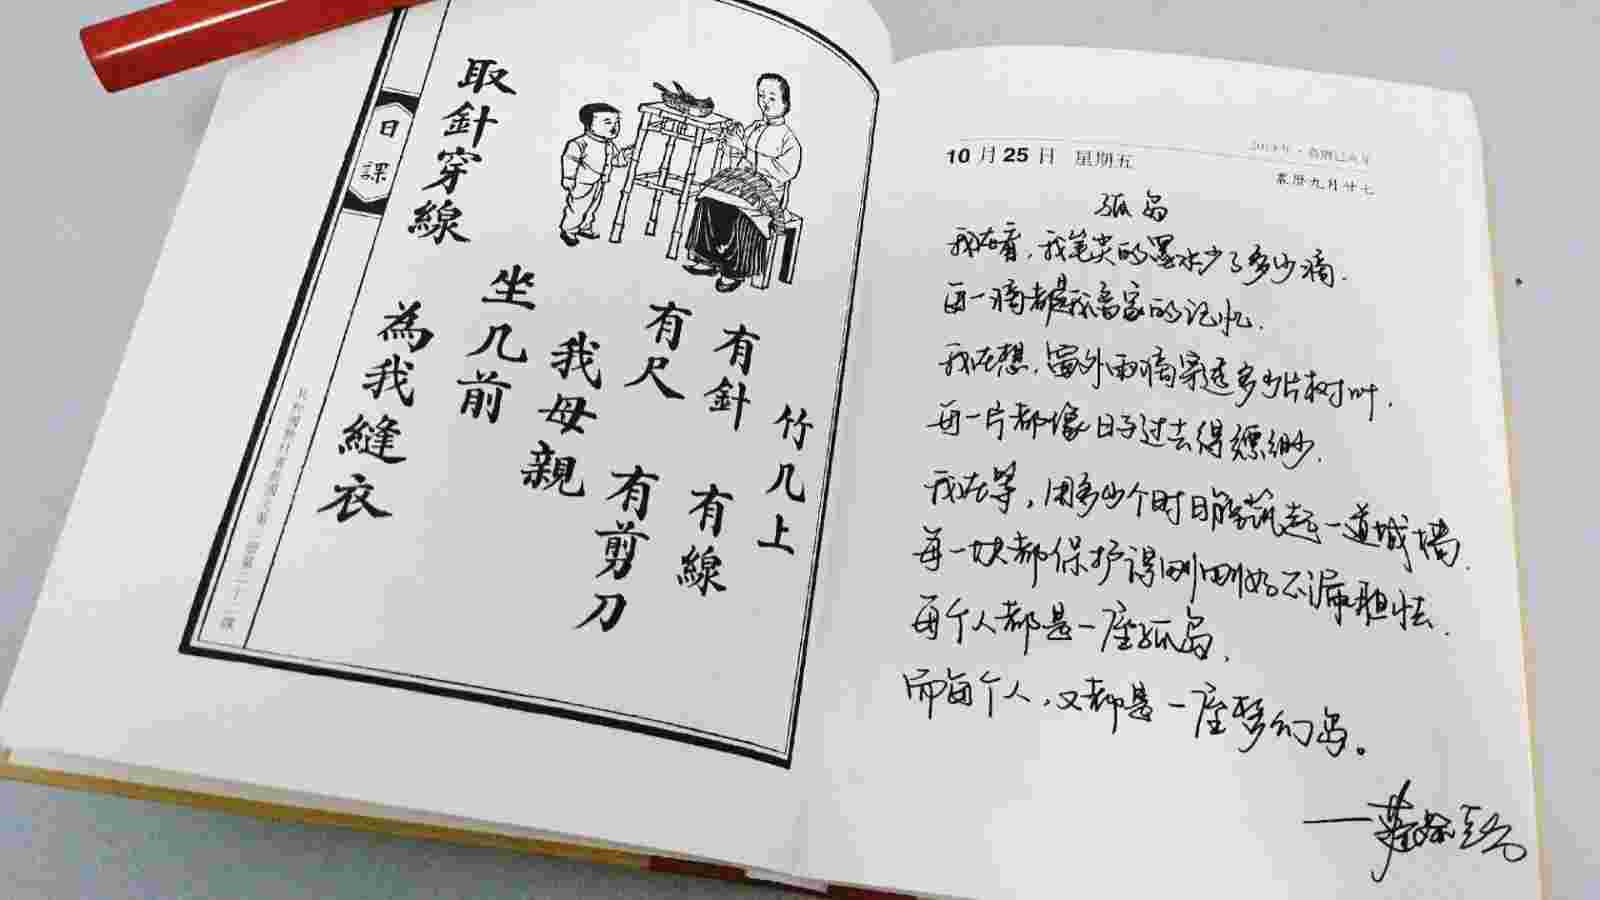 日課
竹几上
有針 有線
有尺 有剪刀
我母親
坐几前
取針穿線
為我縫衣
10月25日 星期五
農曆九月廿七
孤岛
我在看，我笔尖的墨水少了多少滴.
每一滴都是我家的记忆.
我在想，窗外雨滴穿透多少片树叶.
每一片都像日子过去得缥缈.
我在等，用多少个时日能筑起一道城墙.
每一块都保护得刚刚好不漏胆怯.
每个人都是一座孤岛，
而每个人，又都是一座梦幻岛。